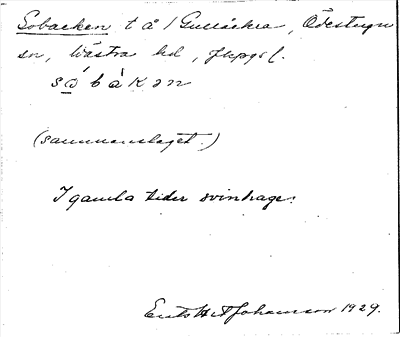 Sobacken t å 1 Gullåckra, Ödestugu
sn, Västra hd, Jkpgs l.
sǫ́ b à k ə n
(sammanslaget.)
I gamla tider svinhage.
Johansson 1929.